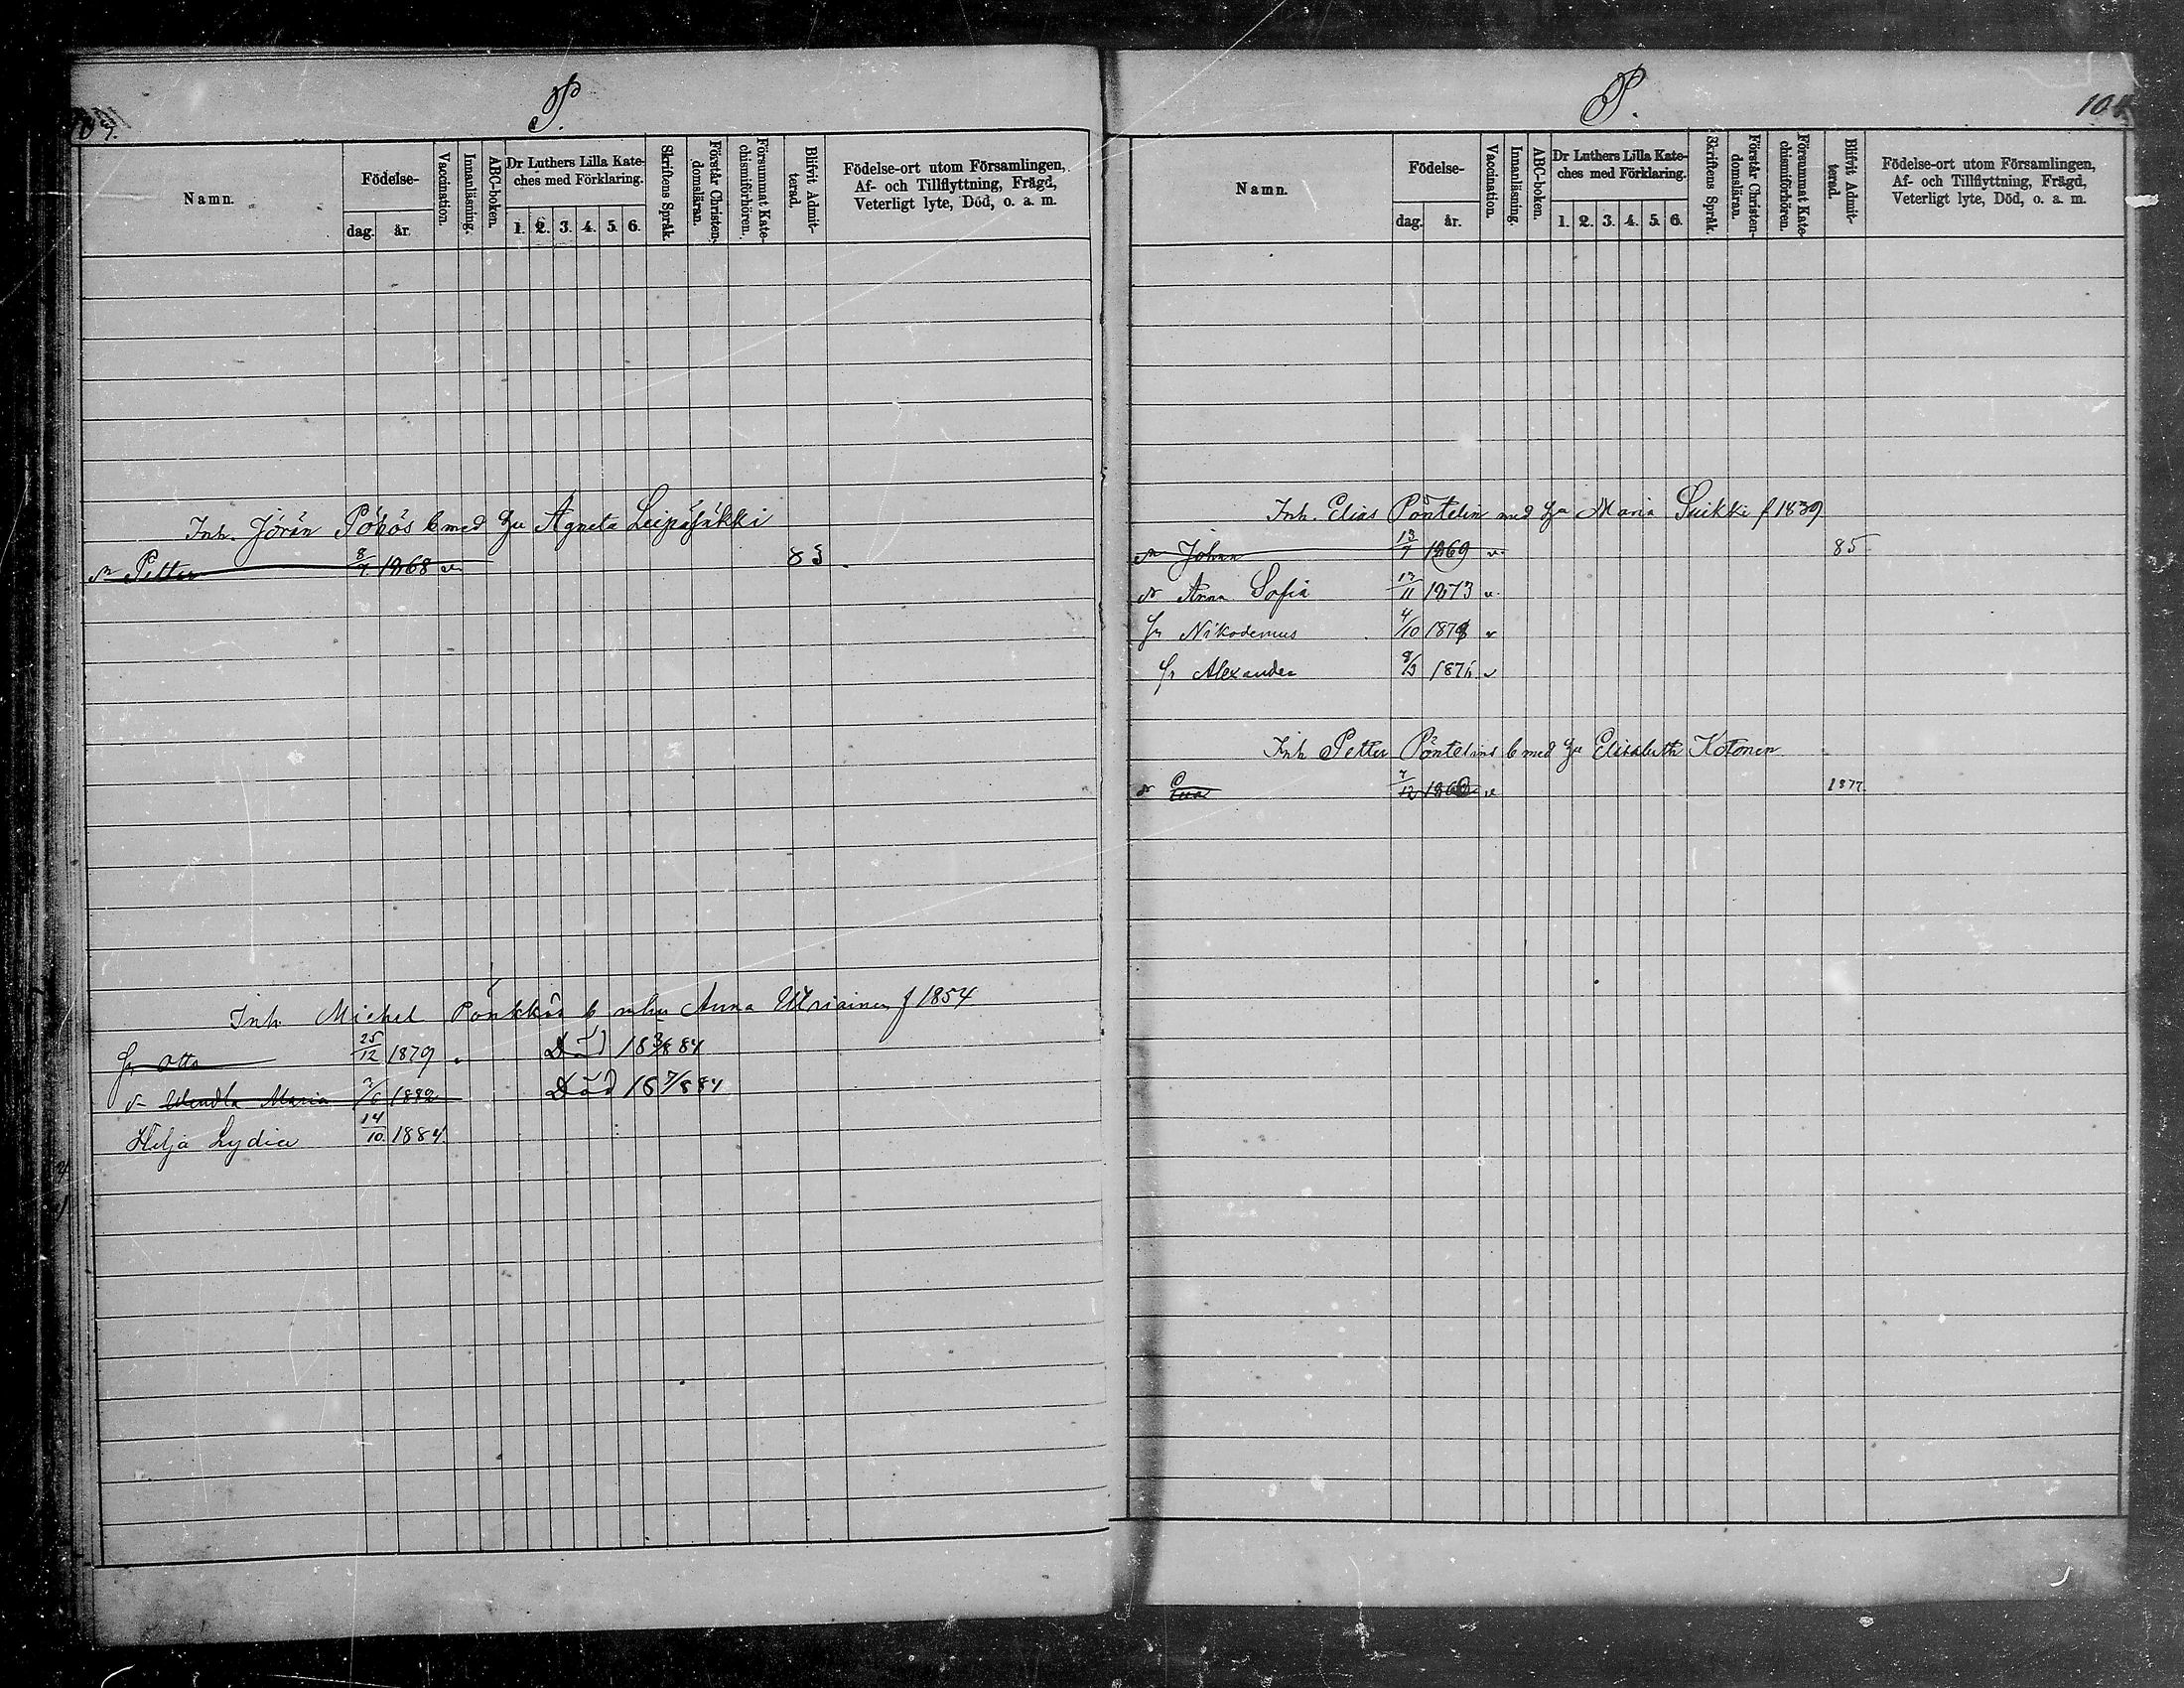 P.
Namn. Födelse- dag. år. Vaccination. Innanläsning. ABC-boken. Dr Luthers Lilla Kate-ches med Förklaring. 1. 2. 3. 4. 5. 6. Skriftens Språk. Förstår Christen-domsläran. Försummat Kate-chismiförhören. Blifvit Admit-terad. Födelse-ort utom Församlingen, Af- och Tillflyttning, Frägd, Veterligt lyte, Död, o. a. m.
Inh. Jörän Pöhös b med hu Agneta Leipäjäkki
Petter 8/7 1868 v. 83.
Inh. Michel Pönkkös b m hu Anna Utriainen f 1854
Otto 25/12 1879 Död 18 3/8 84
Wendla Maria 2/6 1882 Död 18 7/8 84
Hilja Lydia 14/10 1884
P. 104
Namn. Födelse- dag. år. Vaccination. Innanläsning. ABC-boken. Dr Luthers Lilla Kate-ches med Förklaring. 1. 2. 3. 4. 5. 6. Skriftens Språk. Förstår Christen-domsläran. Försummat Kate-chismiförhören. Blifvit Admit-terad. Födelse-ort utom Församlingen, Af- och Tillflyttning, Frägd, Veterligt lyte, Död, o. a. m.
Inh. Elias Pöntelin med hu Maria Suikki f 1839
Johan 13/7 1869 v. 85
Anna Sofia 12/11 1873 v.
Nikodemus 4/10 v
Alexander 8/3 v
Inh Petter Pöntelins b med hu Elisabeth Kotonen
Eva 7/12 v 1877.